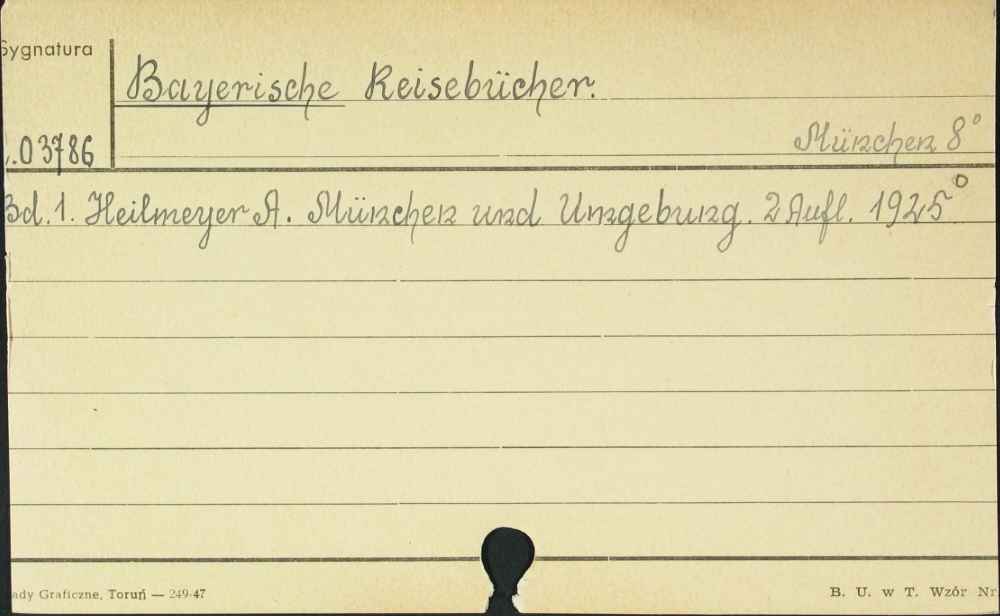 Sygnatura
Bayerische Reisebücher.
03786
München 8°
Bd. 1. Heilmeyer A. München und Umgebung. 2 Aufl. 1925°
ady Graficzne, Toruń — 249-47
B. U. w T. Wzór Nr